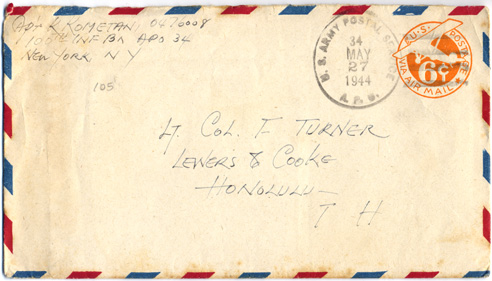 K KOMETANI 0426008
100th INF BN APO 34
NEW YORK, N Y
105
U. S. ARMY POSTAL SERVICE
34
MAY
27
1944
A.P.O.
U.S. POSTAGE
6¢
VIA AIR MAIL
Lt. COL. F TURNER
LEWERS & COOKE
HONOLULU —
T H